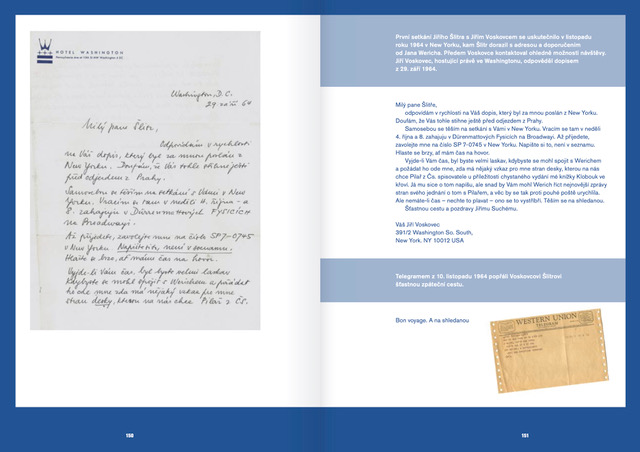 HOTEL WASHINGTON
Washington, D.C.
29. září 64
Milý pane Šlitr,
odpovídám v rychlosti
na Váš dopis, který byl za mnou poslán z
New Yorku. Doufám, že Vás tohle stihne ještě
před odjezdem z Prahy.
Samosebou se těším na setkání s Vámi v New
Yorku. Vracím se tam v neděli 4. října a
8. zahajuju v Dürrenmattových FYSICÍCH
na Broadwayi.
Až přijedete, zavolejte mne na číslo SP 7-0745
v New Yorku. Napište si to, není v seznamu.
Hlaste se brzo, ať máme čas na hovor.
Vyjde-li Vám čas, byl byste velmi laskav
kdybyste se mohl spojit s Werichem a požádat
ho ode mne, zda má nějaký vzkaz pro mne
stran desky, kterou na nás chce Pilař z ČS.
150
První setkání Jiřího Šlitra s Jiřím Voskovcem se uskutečnilo v listopadu
roku 1964 v New Yorku, kam Šlitr dorazil s adresou a doporučením
od Jana Wericha. Předem Voskovce kontaktoval ohledně možnosti návštěvy.
Jiří Voskovec, hostující právě ve Washingtonu, odpověděl dopisem
z 29. září 1964.
Milý pane Šlitře,
odpovídám v rychlosti na Váš dopis, který byl za mnou poslán z New Yorku.
Doufám, že Vás tohle stihne ještě před odjezdem z Prahy.
Samosebou se těším na setkání s Vámi v New Yorku. Vracím se tam v neděli
4. října a 8. zahajuju v Dürrenmattových Fysicích na Broadwayi. Až přijedete,
zavolejte mne na číslo SP 7-0745 v New Yorku. Napište si to, není v seznamu.
Hlaste se brzy, ať mám čas na hovor.
Vyjde-li Vám čas, byl byste velmi laskav, kdybyste se mohl spojit s Werichem
a požádat ho ode mne, zda má nějaký vzkaz pro mne stran desky, kterou na nás
chce Pilař z Čs. spisovatele u příležitosti chystaného vydání mé knížky Klobouk ve
křoví. Já mu sice o tom napíšu, ale snad by Vám mohl Werich říct nejnovější zprávy
stran svého jednání o tom s Pilařem, a věc by se tak proti pouhé poště urychlila.
Ale nemáte-li čas – nechte to plavat – ono se to vystříbří. Těším se na shledanou.
Šťastnou cestu a pozdravy Jiřímu Suchému.
Váš Jiří Voskovec
391/2 Washington So. South,
New York, NY 10012 USA
Telegramem z 10. listopadu 1964 popřál Voskovcovi Šlitrovi
šťastnou zpáteční cestu.
Bon voyage. A na shledanou
WESTERN UNION
TELEGRAM
151